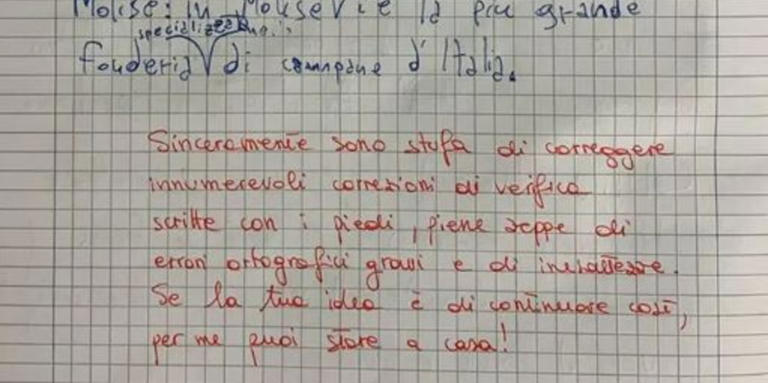 Molise: in Molise v'è la più grande
specializzazione
fonderia di campane d'Italia.
Sinceramente sono stufa di correggere
innumerevoli correzioni di verifica
scritte con i piedi, piene zeppe di
errori ortografici gravi e di inesattezze.
Se la tua idea è di continuare così,
per me puoi stare a casa!